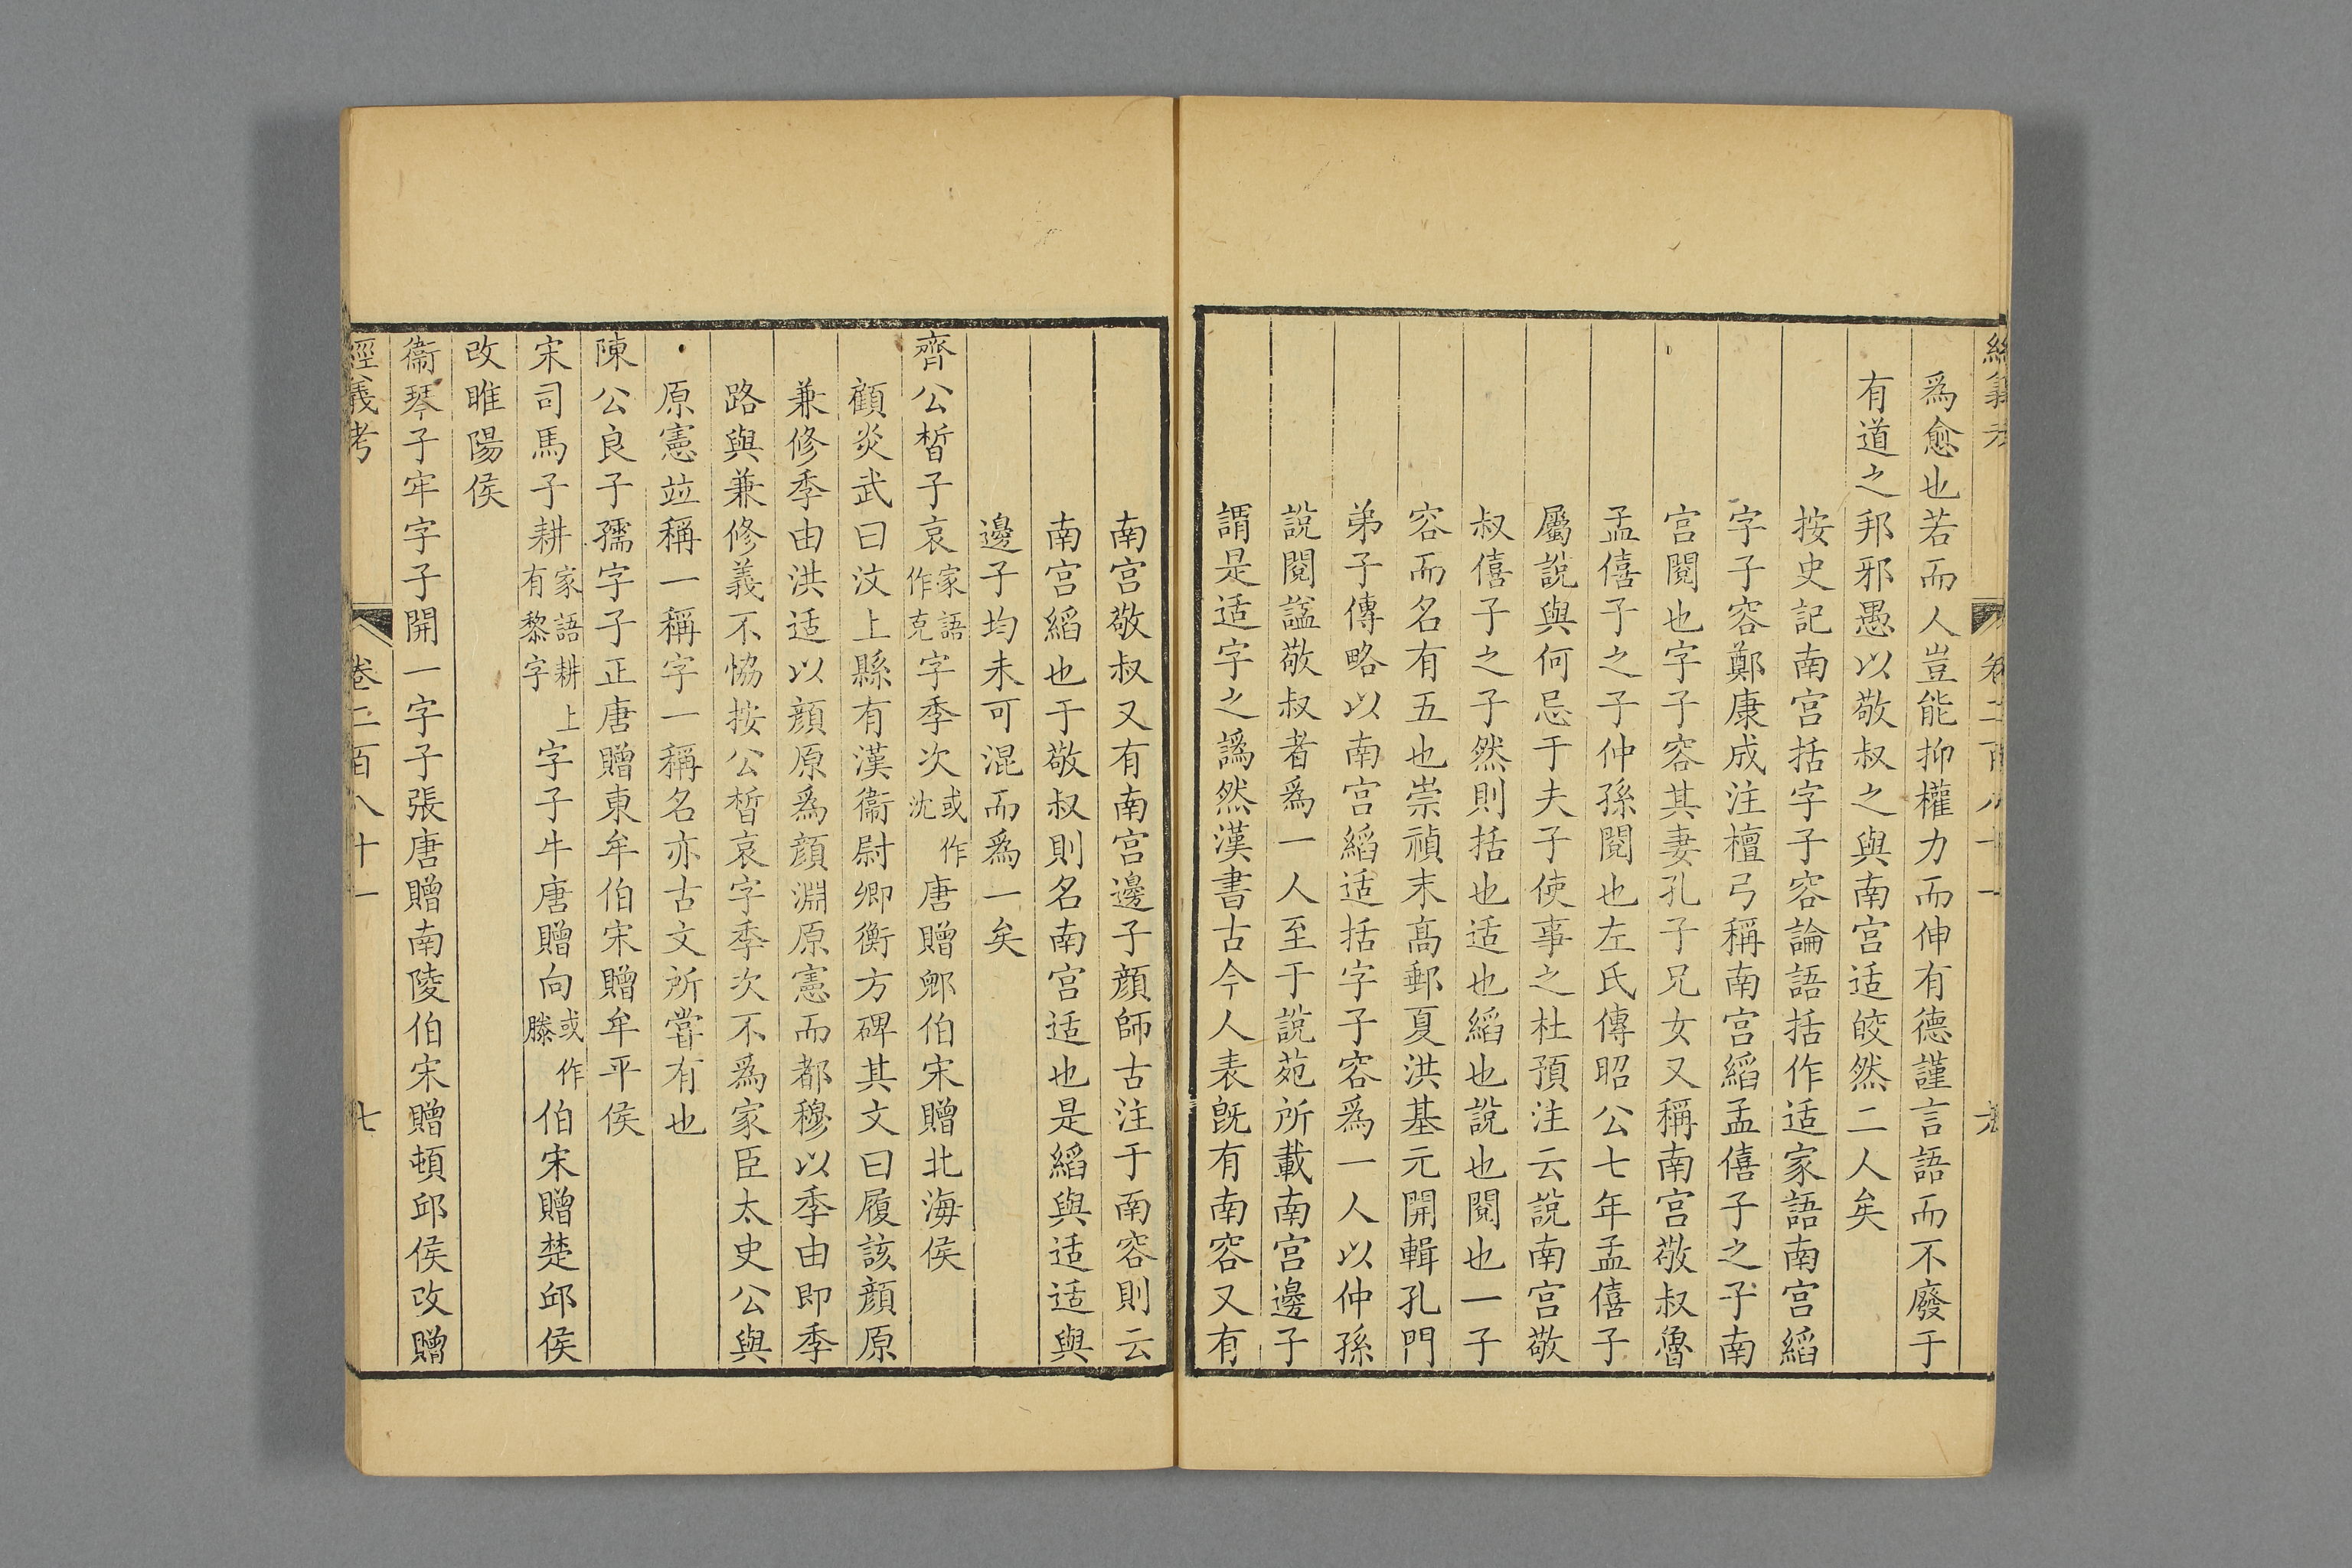 爲愈也若而人豈能抑權力而伸有德謹言語而不廢于
有道之邦邪愚以敬叔之與南宮适皎然二人矣
按史記南宮括字子容論語括作适家語南宮縚
字子容鄭康成注檀弓稱南宮縚孟僖子之子南
宮閱也字子容其妻孔子兄女又稱南宮敬叔魯
孟僖子之子仲孫閱也左氏傳昭公七年孟僖子
屬說與何忌于夫子使事之杜預注云說南宮敬
叔僖子之子然則括也适也縚也說也閱也一子
容而名有五也崇禎末高郵夏洪基元開輯孔門
弟子傳略以南宮縚适括字子容爲一人以仲孫
說閱諡敬叔者爲一人至于說苑所載南宮邊子
謂是适字之譌然漢書古今人表旣有南容又有
南宮敬叔又有南宮邊子顏師古注于南容則云
南宮縚也于敬叔則名南宮适也是縚與适适與
邊子均未可混而爲一矣
齊公晳子哀家語作克字季次或作沈唐贈郳伯宋贈北海侯
顧炎武曰汶上縣有漢衞尉卿衡方碑其文曰履該顏原
兼修季由洪适以顏原爲顏淵原憲而都穆以季由即季
路與兼修義不恊按公晳哀字季次不爲家臣太史公與
原憲竝稱一稱字一稱名亦古文所嘗有也
陳公良子孺字子正唐贈東牟伯宋贈牟平侯
宋司馬子耕家語耕上有黎字字子牛唐贈向或作滕伯宋贈楚邱侯
改睢陽侯
衞琴子牢字子開一字子張唐贈南陵伯宋贈頓邱侯改贈
經義考 卷二百八十一 七